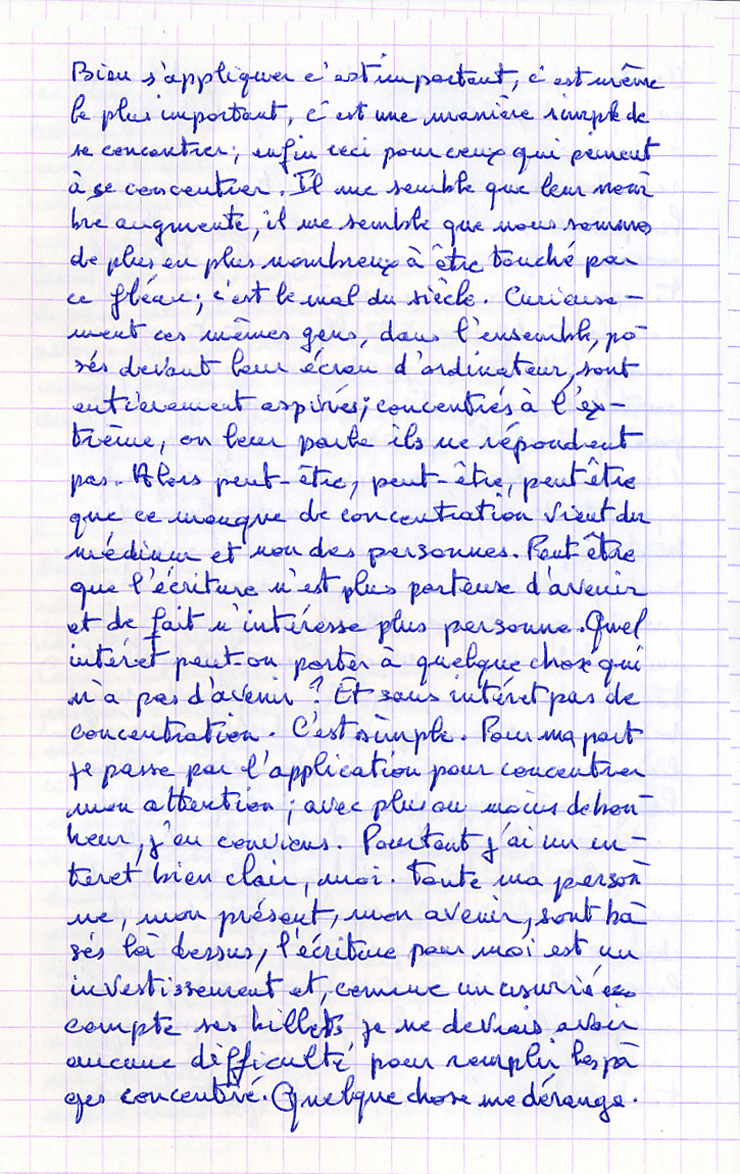 Bien s'appliquer c'est important, c'est même
le plus important, c'est une manière simple de
se concentrer; enfin ceci pour ceux qui peinent
à se concentrer. Il me semble que leur nom
bre augmente, il me semble que nous sommes
de plus en plus nombreux à être touché par
ce fléau; c'est le mal du siècle. Curieuse-
ment ces mêmes gens, dans l'ensemble, po-
sés devant leur écran d'ordinateur, sont
entièrement aspirés; concentrés à l'ex-
trême, on leur parle ils ne répondent
pas. Alors peut-être, peut-être, peut être
que ce manque de concentration vient du
médium et non des personnes. Peut être
que l'écriture n'est plus porteuse d'avenir
et de fait n'intéresse plus personne. Quel
intéret peut-on porter à quelque chose qui
n'a pas d'avenir ? Et sans intéret pas de
concentration. C'est simple. Pour ma part
je passe par l'application pour concentrer
mon attention; avec plus ou moins de bon-
heur, j'en conviens. Pourtant j'ai un in-
téret bien clair, moi. Toute ma person
ne, mon présent, mon avenir, sont ba-
sés là dessus, l'écriture pour moi est un
investissement et, comme un usurié
compte ses billets je ne devrais avoir
aucune difficulté pour remplir les pa
ges concentré. Quelque chose me dérange.